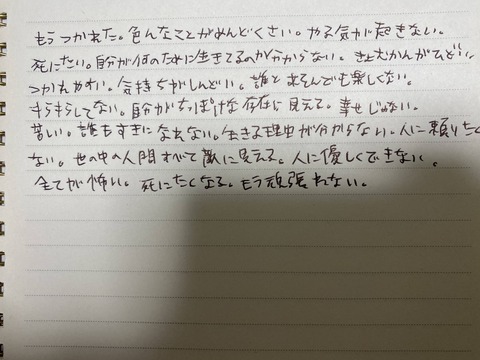 もうつかれた。色んなことがめんどくさい。やる気が起きない。
死にたい。自分が何のために生きてるのか分からない。きょむかんがひどい。
つかれやすい。気持ちがしんどい。誰とあそんでも楽しくない。
キラキラしてない。自分がちっぽけな存在に見える。幸せじゃない。
苦しい。誰もすきになれない。生きる理由が分からない。人に頼りたく
ない。世の中の人間すべて敵に見える。人に優しくできない。
全てが怖い。死にたくなる。もう頑張れない。